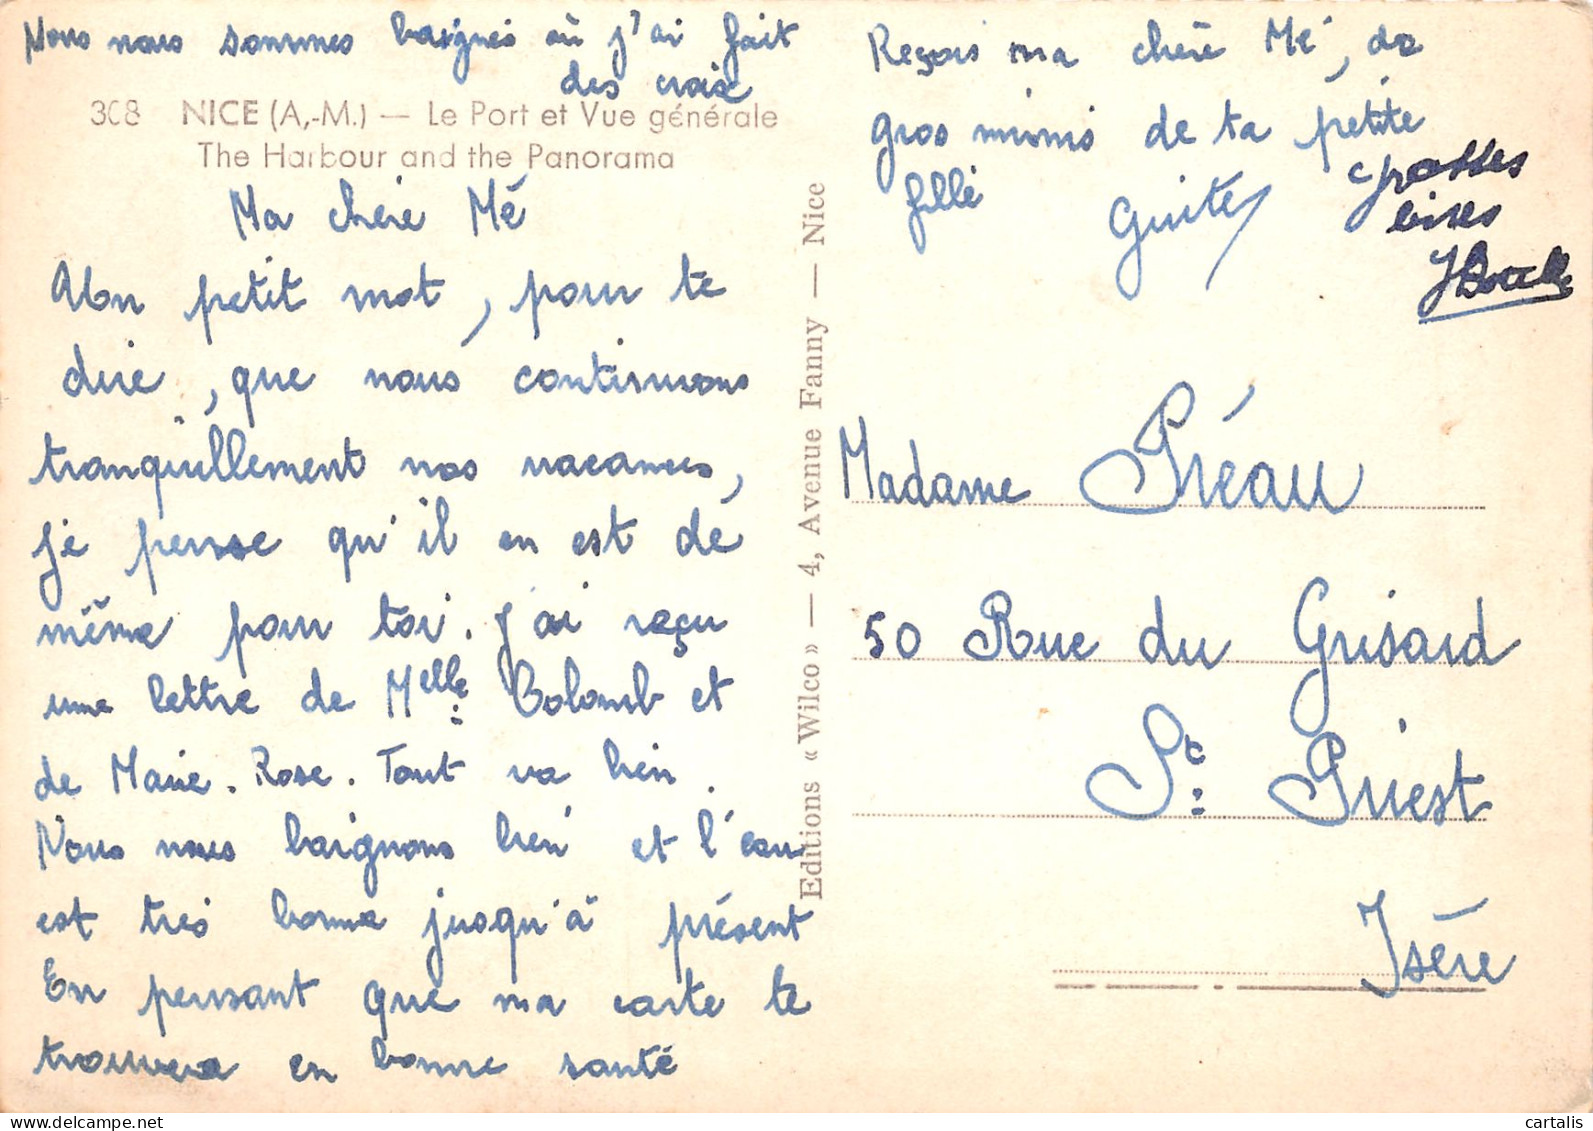 Nous nous sommes baignés où j'ai fait
des croix
308 NICE (A.-M.) — Le Port et Vue générale
The Harbour and the Panorama
Ma chère Mé
Un petit mot, pour te
dire, que nous continuons
tranquillement nos vacances,
je pense qu'il en est de
même pour toi. J'ai reçu
une lettre de Melle Colomb et
de Marie-Rose. Tout va bien.
Nous nous baignons bien et l'eau
est très bonne jusqu'à présent
En pensant que ma carte te
trouvera en bonne santé
Reçois ma chère Mé, de
gros mimis de ta petite
fille Guite
grosses
bises
Editions « Wilco » — 4, Avenue Fanny — Nice
Madame Préau
50 Rue du Grisard
St Priest
Isère
cartalis